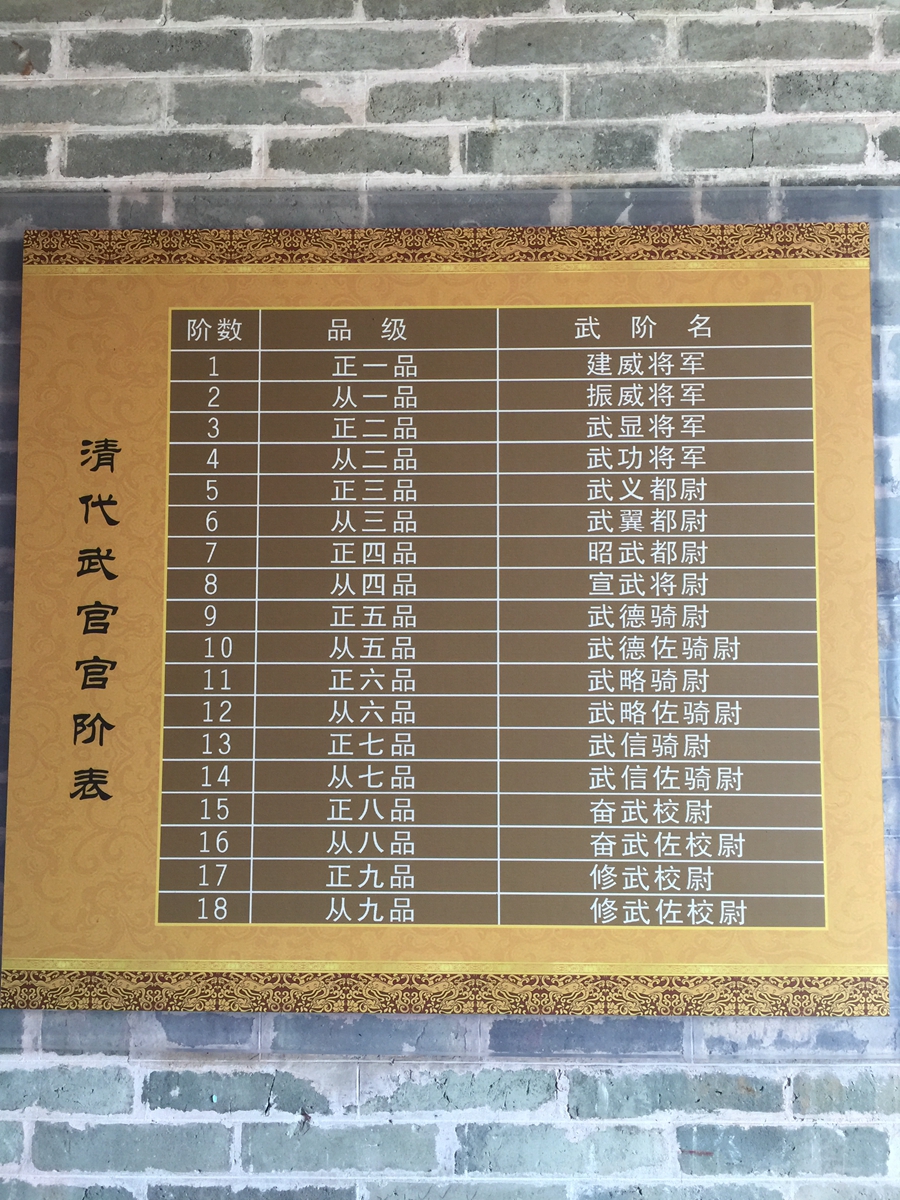 清代武官官阶表
阶数 品级 武阶名
1 正一品 建威将军
2 从一品 振威将军
3 正二品 武显将军
4 从二品 武功将军
5 正三品 武义都尉
6 从三品 武翼都尉
7 正四品 昭武都尉
8 从四品 宣武将尉
9 正五品 武德骑尉
10 从五品 武德佐骑尉
11 正六品 武略骑尉
12 从六品 武略佐骑尉
13 正七品 武信骑尉
14 从七品 武信佐骑尉
15 正八品 奋武校尉
16 从八品 奋武佐校尉
17 正九品 修武校尉
18 从九品 修武佐校尉